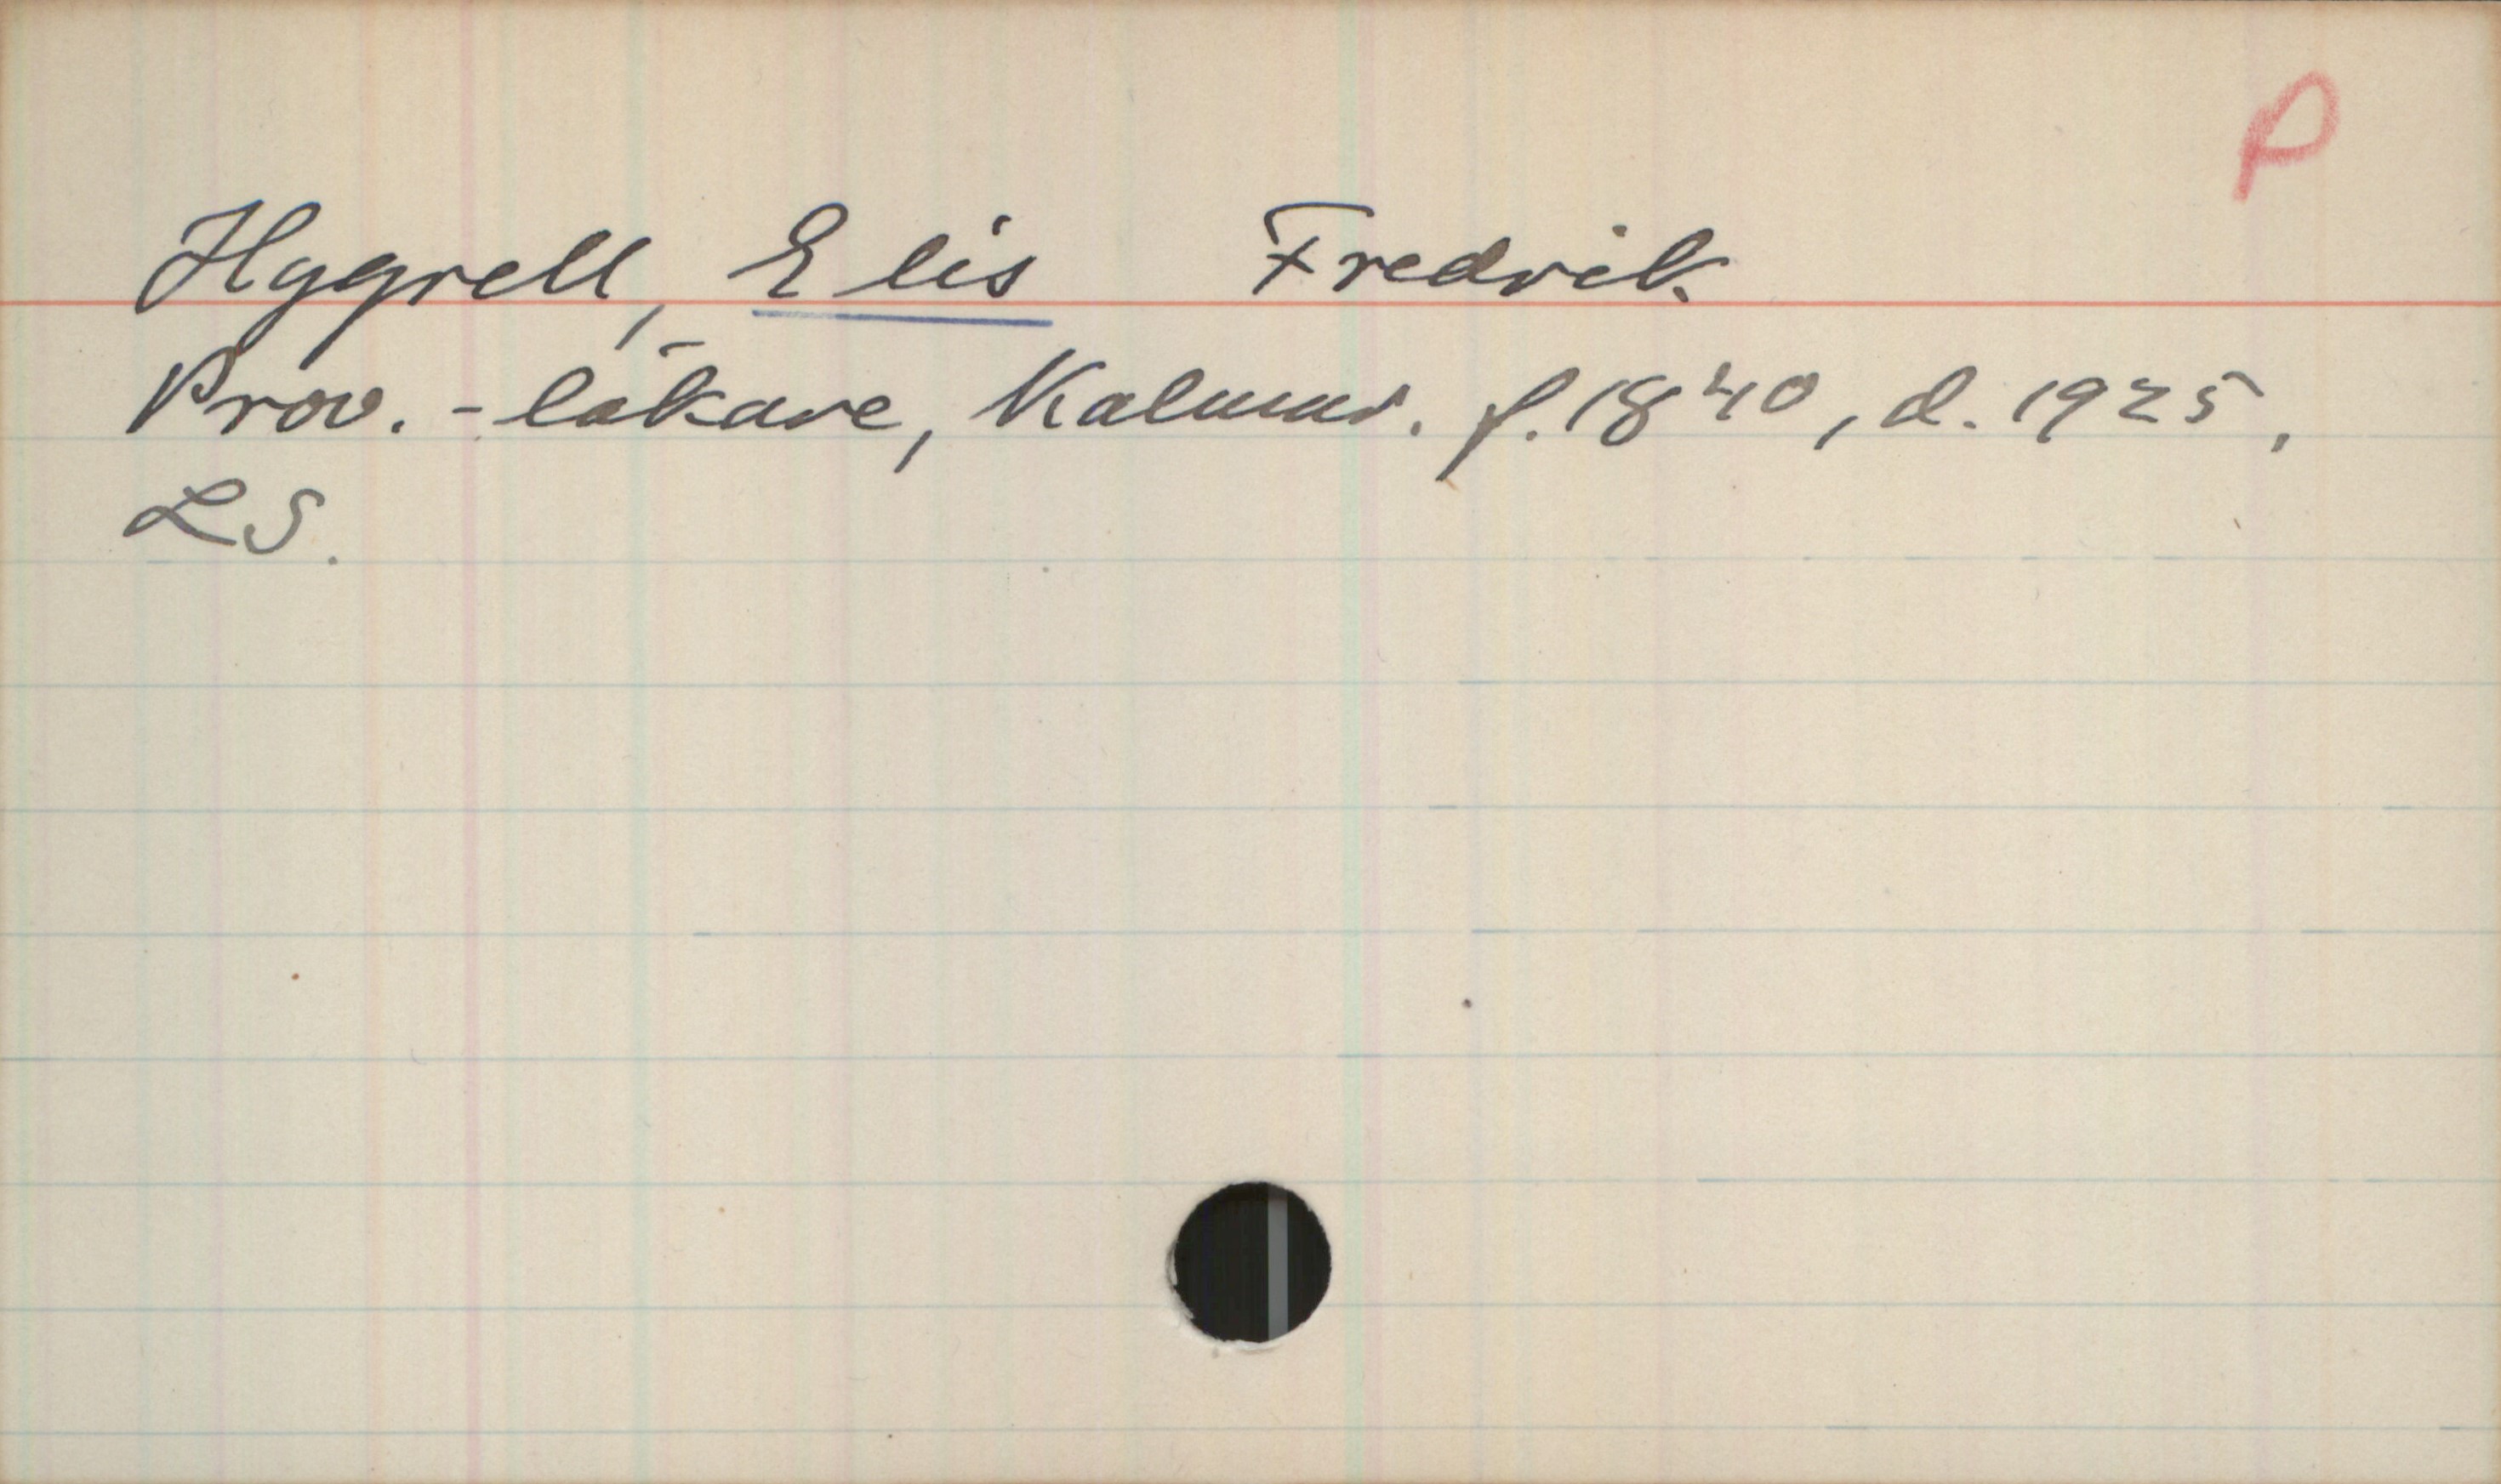 P
Hygrell, Elis Fredrik
Prov.-läkare, Kalmar. f. 1840, d. 1925.
LS.